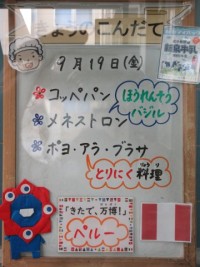 きょうのこんだて
9月19日(金)
コッペパン
ほうれんそう
バジル
メネストロン
ポヨ・アラ・ブラサ
とりにく料理
「きたで、万博!」
ペルー